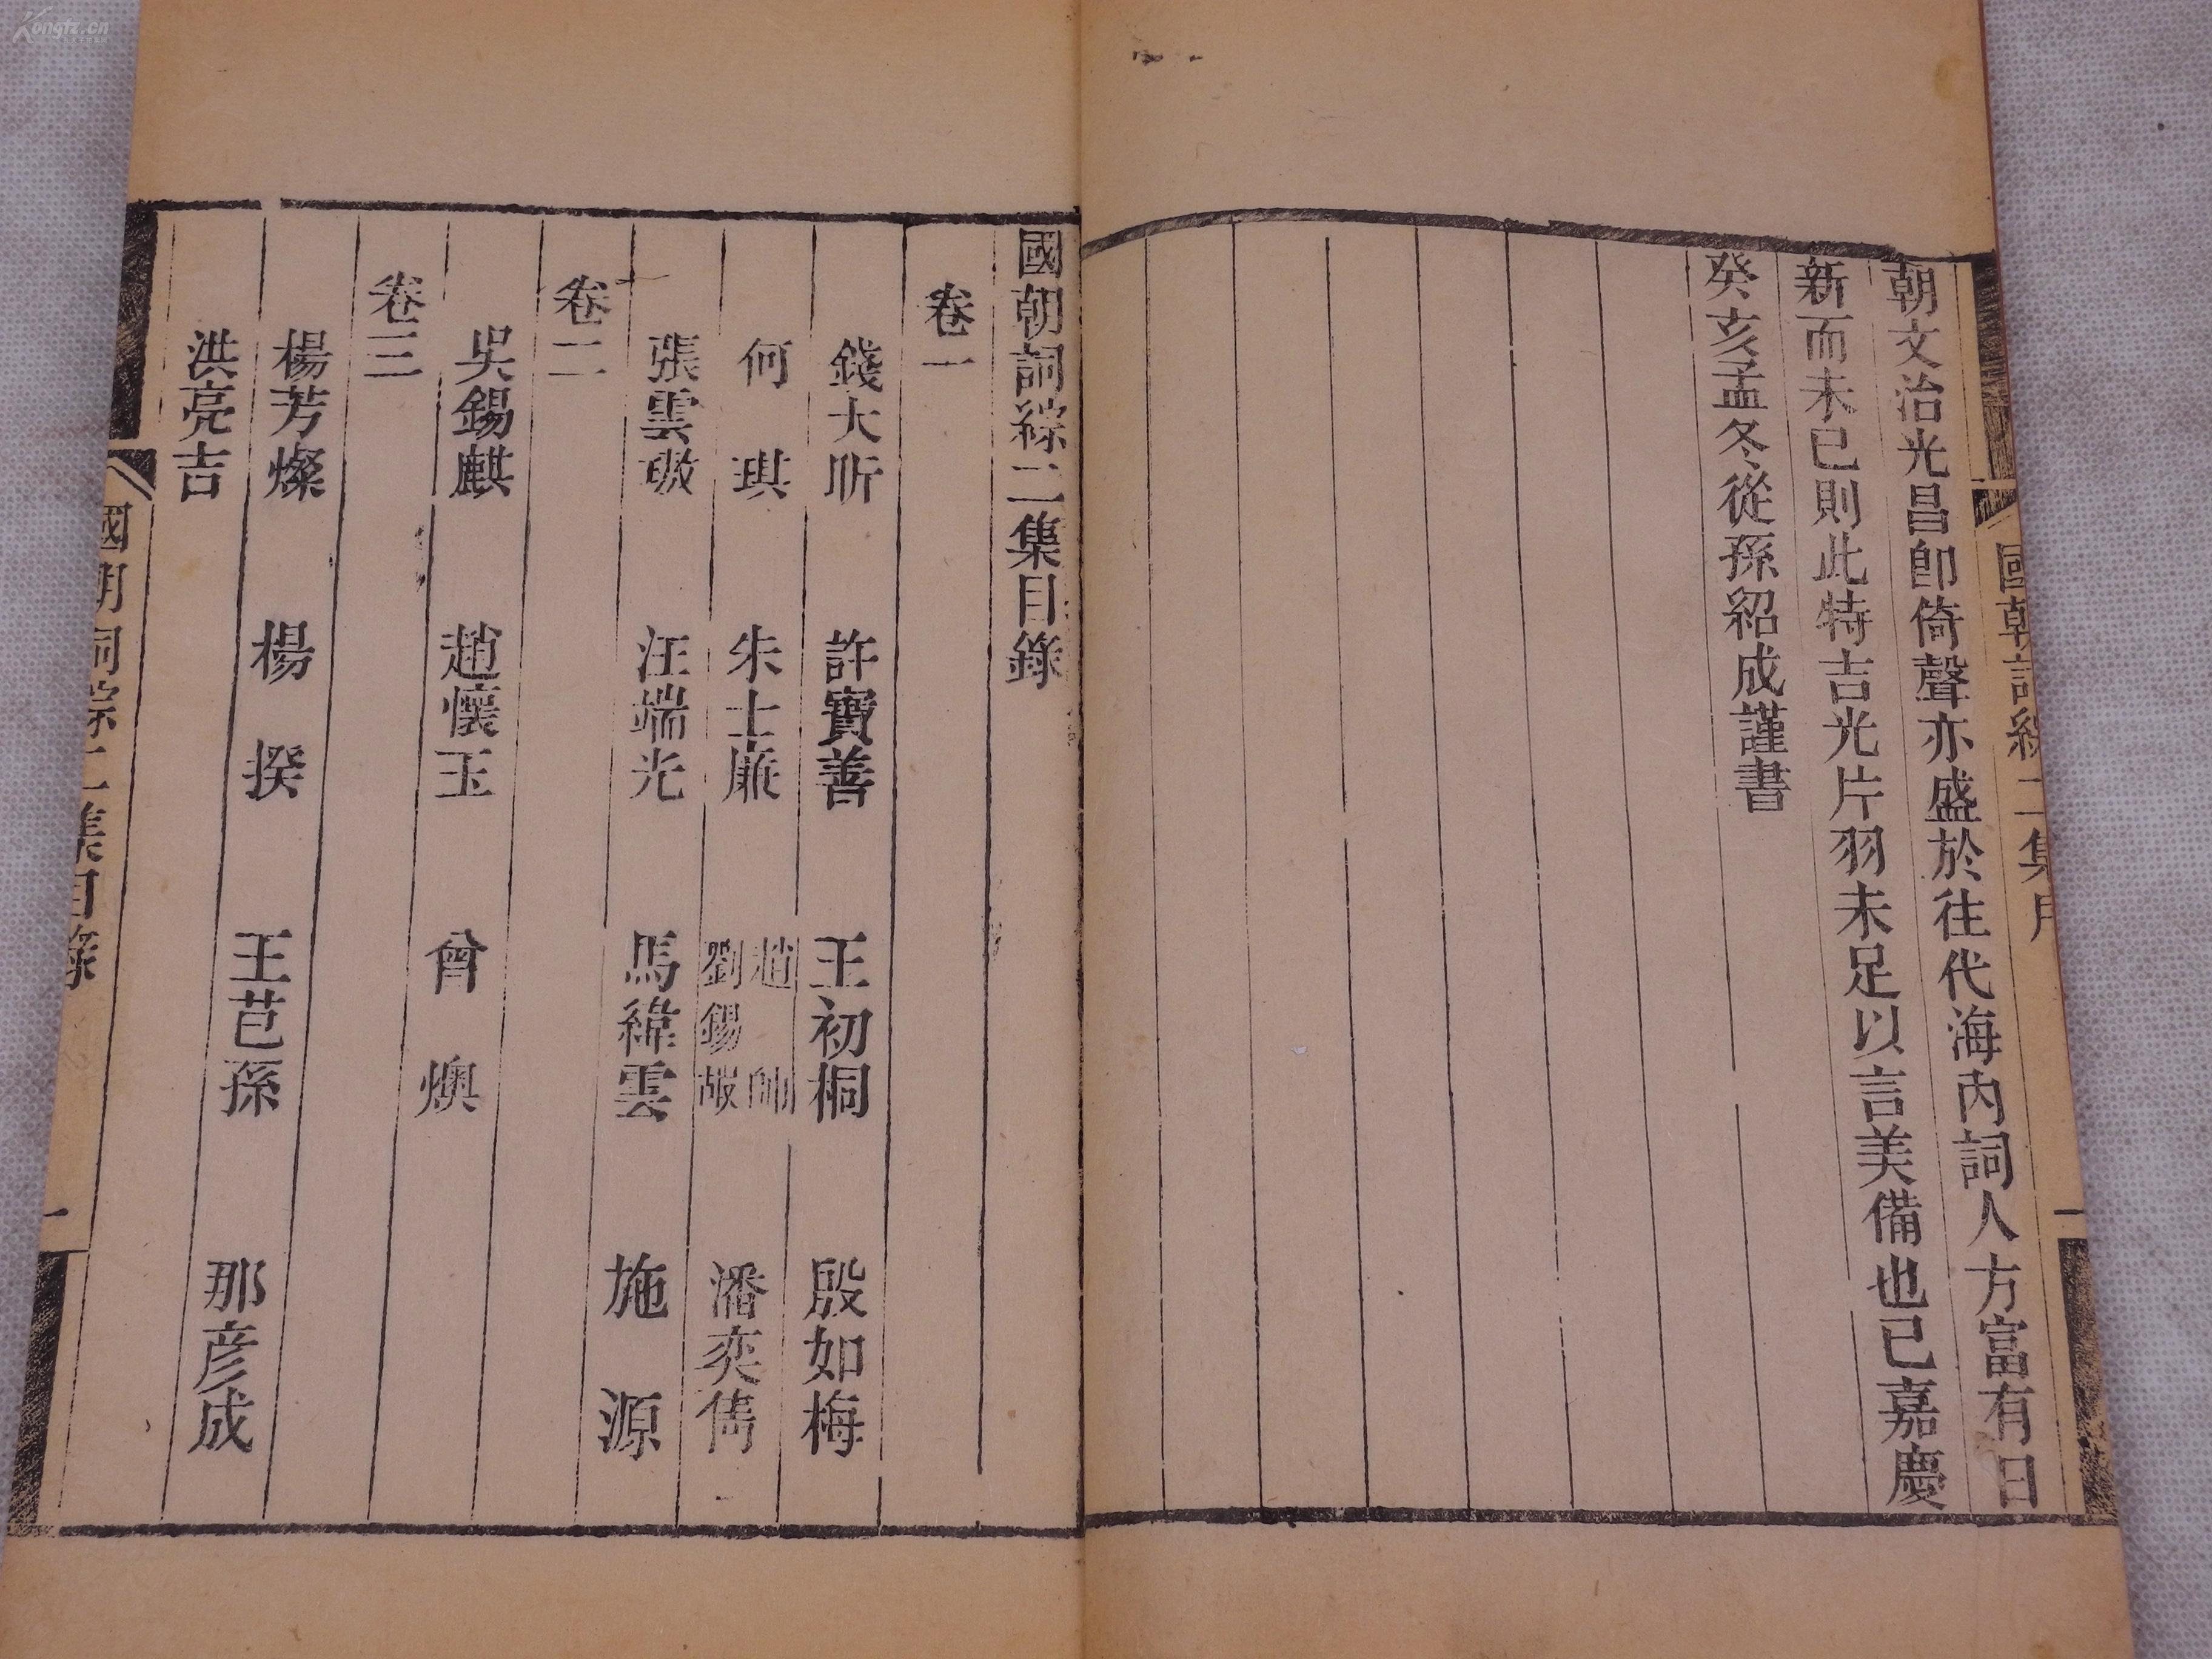 國朝詞綜二集序
一
朝文治光昌卽倚聲亦盛於往代海內詞人方富有日
新而未已則此特吉光片羽未足以言美備也已嘉慶
癸亥孟冬從孫紹成謹書
國朝詞綜二集目錄
卷一
錢大昕 許寶善 王初桐 殷如梅
何琪 朱士廉 趙帥 劉錫嘏 潘奕雋
張雲璈 汪端光 馬緯雲 施源
卷二
吳錫麒 趙懷玉 曾燠
卷三
楊芳燦 楊揆 王芑孫 那彥成
洪亮吉
國朝詞綜二集目錄
一
Kongfz.cn